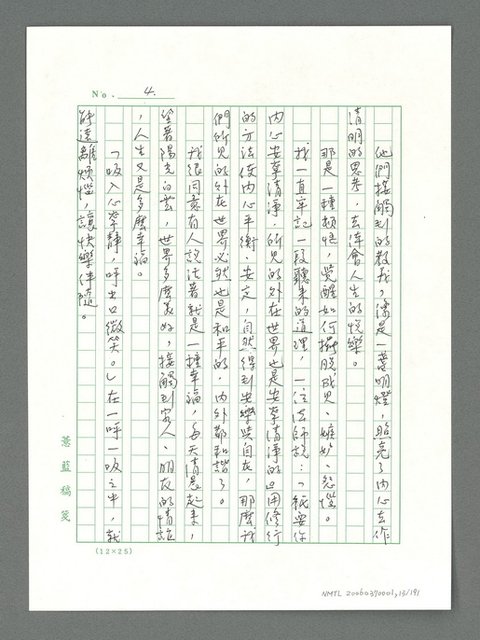 No. 4.
他們接觸到的教義，像是一盞明燈，照亮了內心去作
清明的思考，去体會人生的悅樂。
那是一種頓悟，覺醒如何擺脫成見、嫉妒、怨恨。
我一直牢記一段聽來的道理，一位法師說：「祇要你
內心安寧清淨，所見的外在世界也是安寧清淨的」用修行
的方法使內心平衡、安定，自然得到安樂與自在，那麼我
們所見的外在世界必然也是和平的，內外都和諧了。
我很同意有人說活著就是一種幸福，每天清晨起來，
望著陽光白雲，世界多麼美好，接觸到家人、朋友的情誼
，人生又是多麼幸福。
「吸入心寧靜，呼出口微笑。」在一呼一吸之中，就
能遠離煩惱，讓快樂伴隨。
薏藍稿箋
(12×25)
NMTL 20060390001,13/191